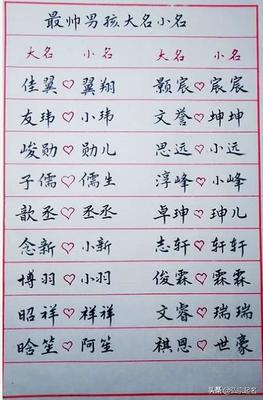 最帅男孩大名小名
大名 小名 大名 小名
佳翼♡翼翔 颢宸♡宸宸
友玮♡小玮 文誉♡坤坤
峻勋♡勋儿 思远♡小远
子儒♡儒生 淳峰♡小峰
歆丞♡丞丞 卓珅♡珅儿
念新♡小新 志轩♡轩轩
博羽♡小羽 俊霖♡霖霖
昭祥♡祥祥 文睿♡瑞瑞
晗笙♡阿笙 祺思♡世豪
头条@弘宗起名